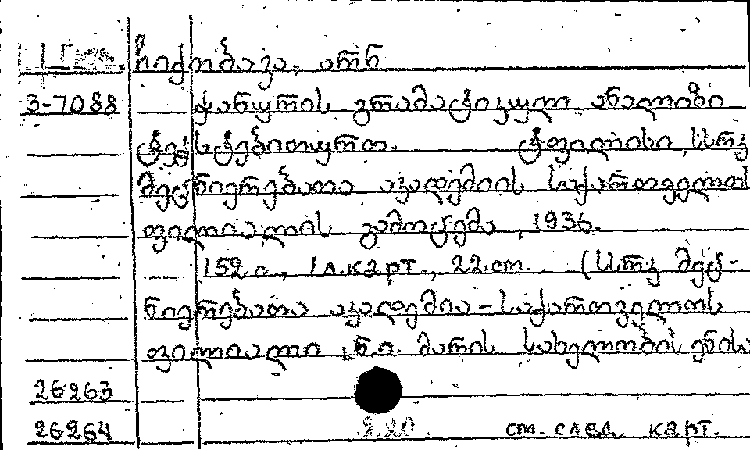 ჩიქობავა, არნ
3-7088 ჭანურის გრამატიკული ანალიზი
ტექსტებითურთ. ტფილისი, სსრკ
მეცნიერებათა აკადემიის საქართველოს
ფილიალის გამოცემა, 1936.
152 с., 1 л. карт., 22 см. (სსრკ მეც-
ნიერებათა აკადემია - საქართველოს
ფილიალი, ნ. მარის სახელობის ენისა
26263
26264 2.20 см. след. карт.